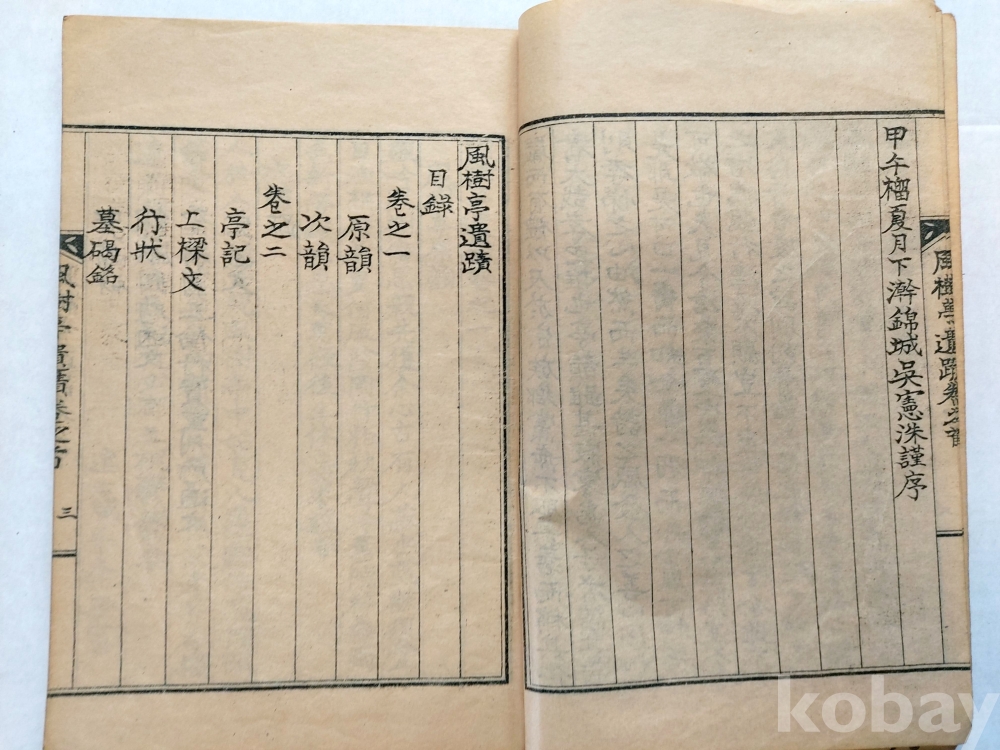 甲午榴夏月下澣錦城吳憲洙謹序
風樹亭遺蹟卷之首
風樹亭遺蹟
目錄
卷之一
原韻
次韻
卷之二
亭記
上樑文
行狀
墓碣銘
風樹亭遺蹟卷之首
三
kobay